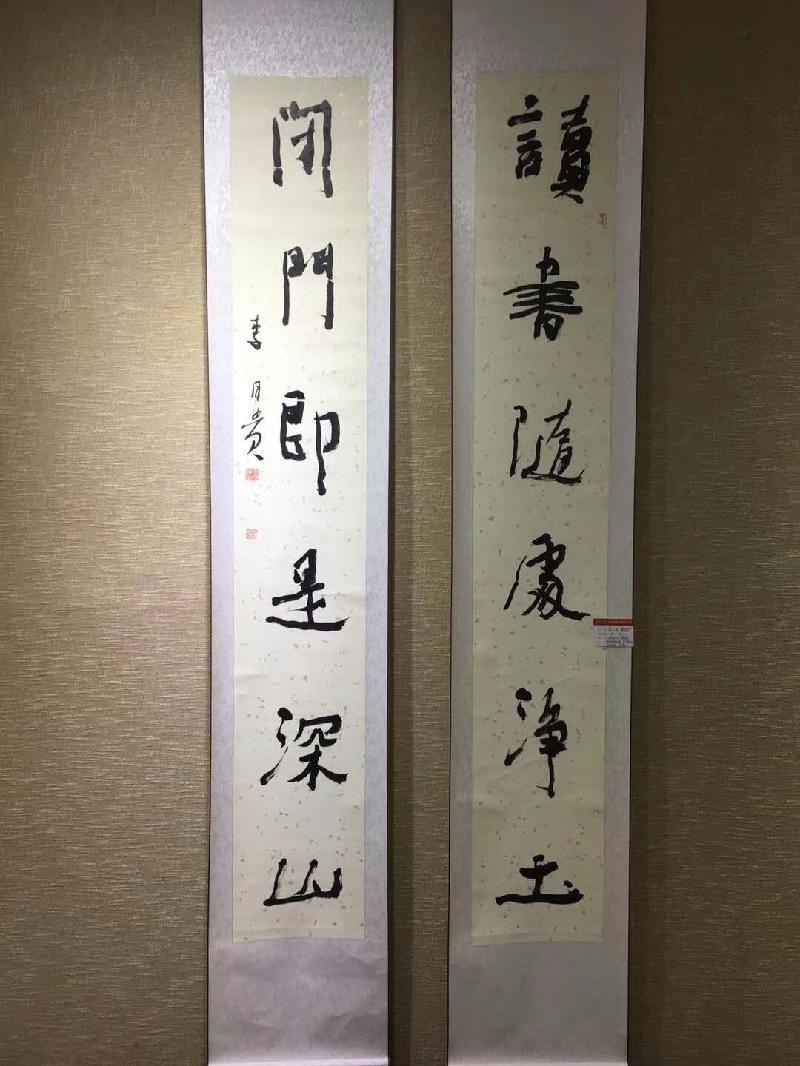 讀書隨處淨土
閉門即是深山
李月貴